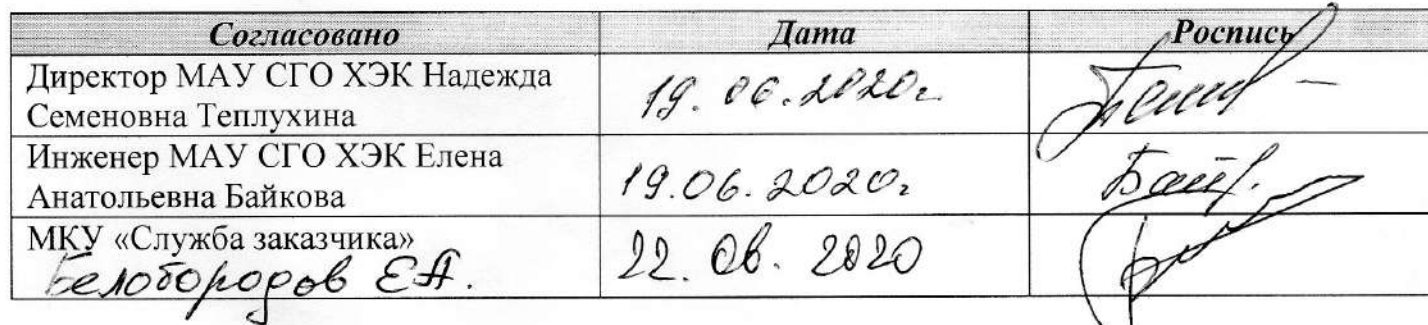 Согласовано Дата Роспись
Директор МАУ СГО ХЭК Надежда
Семеновна Теплухина 19.06.2020г
Инженер МАУ СГО ХЭК Елена
Анатольевна Байкова 19.06.2020г
МКУ «Служба заказчика»
Белобородов Е.А. 22.06.2020